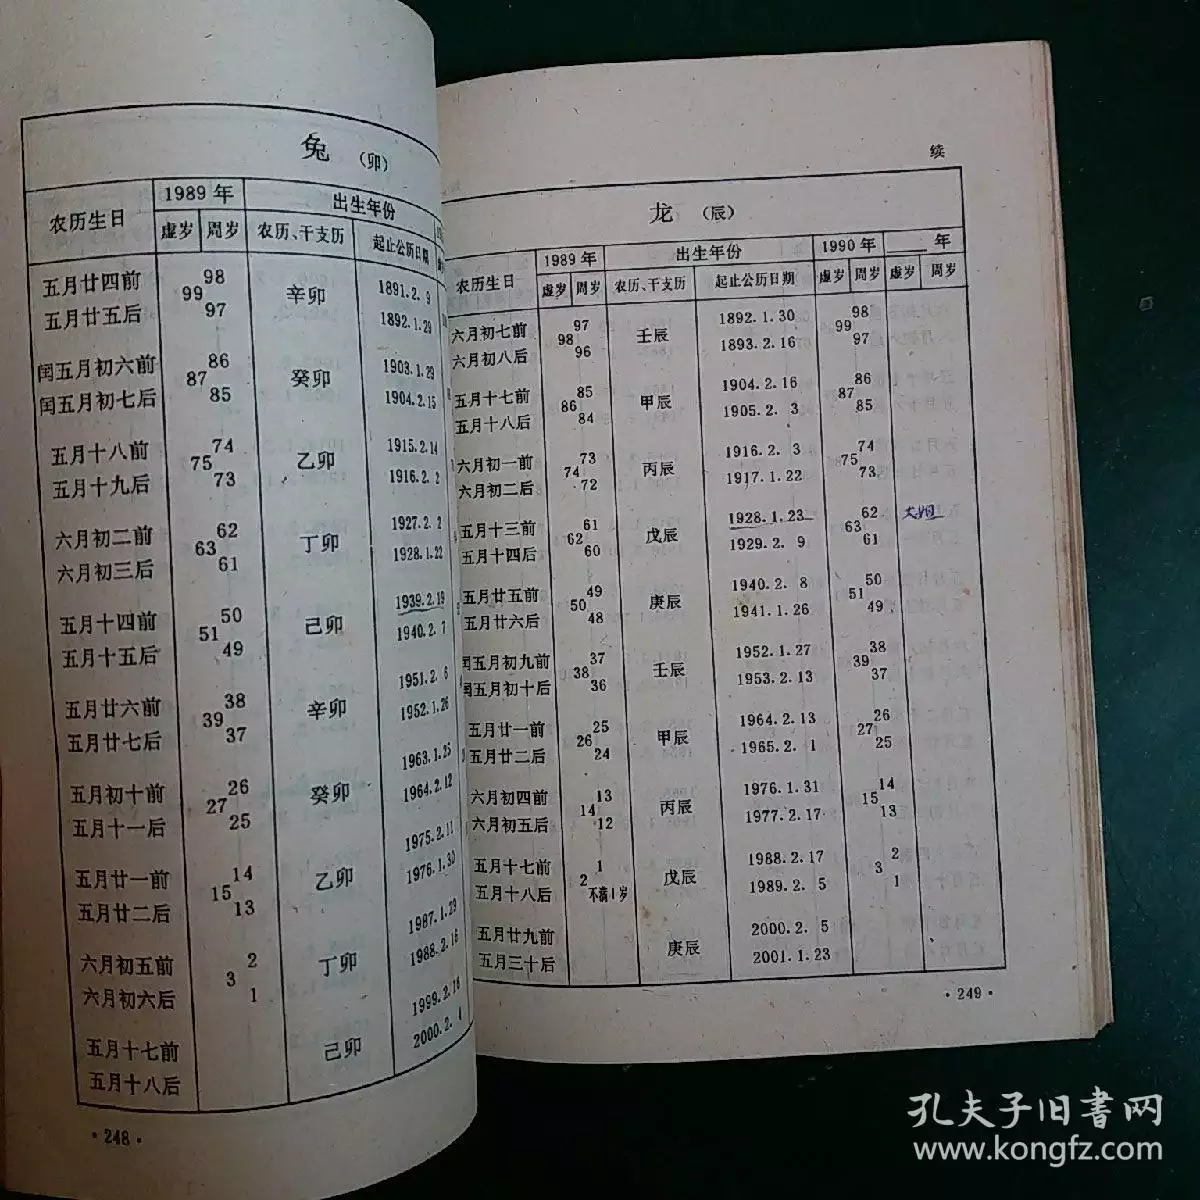 兔 （卯）
农历生日 1989 年 出生年份
虚岁 周岁 农历、干支历 起止公历日期
五月廿四前 98 1891. 2. 9
99 辛卯
五月廿五后 97 1892. 1. 29
闰五月初六前 86 1903. 1. 29
87 癸卯
闰五月初七后 85 1904. 2. 15
五月十八前 74 1915. 2. 14
75 乙卯
五月十九后 73 1916. 2. 2
六月初二前 62 1927. 2. 2
63 丁卯
六月初三后 61 1928. 1. 22
五月十四前 50 1939. 2. 19
51 己卯
五月十五后 49 1940. 2. 7
五月廿六前 38 1951. 2. 6
39 辛卯
五月廿七后 37 1952. 1. 26
五月初十前 26 1963. 1. 25
27 癸卯
五月十一后 25 1964. 2. 12
五月廿一前 14 1975. 2. 11
15 乙卯
五月廿二后 13 1976. 1. 30
六月初五前 2 1987. 1. 29
3 丁卯
六月初六后 1 1988. 2. 16
五月十七前 1999. 2. 16
己卯
五月十八后 2000. 2. 4
· 248 ·
续
龙 （辰）
农历生日 1989 年 出生年份 1990 年 年
虚岁 周岁 农历、干支历 起止公历日期 虚岁 周岁 虚岁 周岁
六月初七前 97 1892. 1. 30 98
98 壬辰 99
六月初八后 96 1893. 2. 16 97
五月十七前 85 1904. 2. 16 86
86 甲辰 87
五月十八后 84 1905. 2. 3 85
六月初一前 73 1916. 2. 3 74
74 丙辰 75
六月初二后 72 1917. 1. 22 73
五月十三前 61 1928. 1. 23 62 大姐
62 戊辰 63
五月十四后 60 1929. 2. 9 61
五月廿五前 49 1940. 2. 8 50
50 庚辰 51
五月廿六后 48 1941. 1. 26 49
闰五月初九前 37 1952. 1. 27 38
38 壬辰 39
闰五月初十后 36 1953. 2. 13 37
五月廿一前 25 1964. 2. 13 26
26 甲辰 27
五月廿二后 24 1965. 2. 1 25
六月初四前 13 1976. 1. 31 14
14 丙辰 15
六月初五后 12 1977. 2. 17 13
五月十七前 1 1988. 2. 17 2
2 戊辰 3
五月十八后 不满1岁 1989. 2. 5 1
五月廿九前 2000. 2. 5
庚辰
五月三十后 2001. 1. 23
· 249 ·
孔夫子旧书网
www.kongfz.com